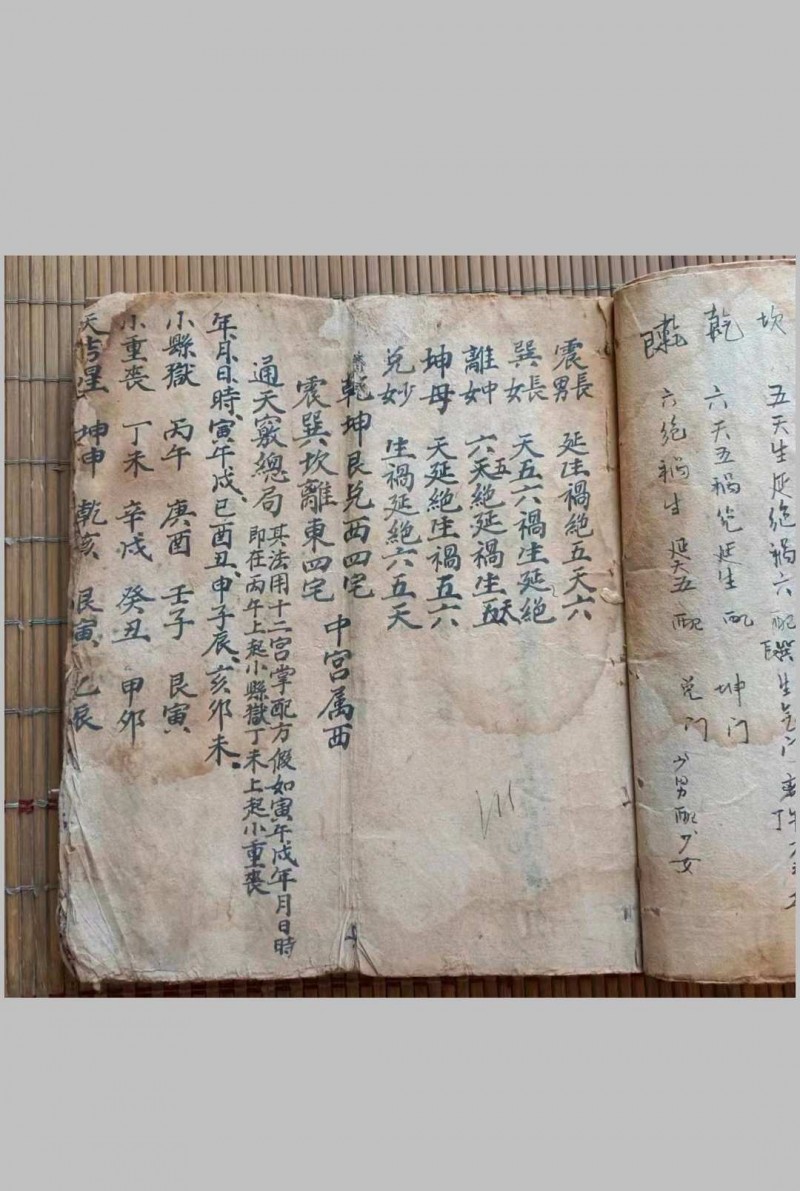 坎 五天生延绝禍六
乾 六天五禍绝延生 配 坤门
六绝禍生 延天五 配 兑门 少男配少女
震長男 延生禍絶五天六
巽長女 天五六禍生延絶
離中女 六天五絶延禍生
坤母 天延絶生禍五六
兌少女 生禍延絶六五天
乾坤艮兌西四宅 中宮属西
震巽坎離東四宅
通天竅總局 其法用十二宮掌配方假如寅午戌年月日時
即在丙午上起小縣獄丁未上起小重喪
年月日時、寅午戌、巳酉丑、申子辰、亥卯未。
小縣獄 丙午 庚酉 壬子 艮寅
小重喪 丁未 辛戌 癸丑 甲卯
坤申 乾亥 艮寅 乙辰